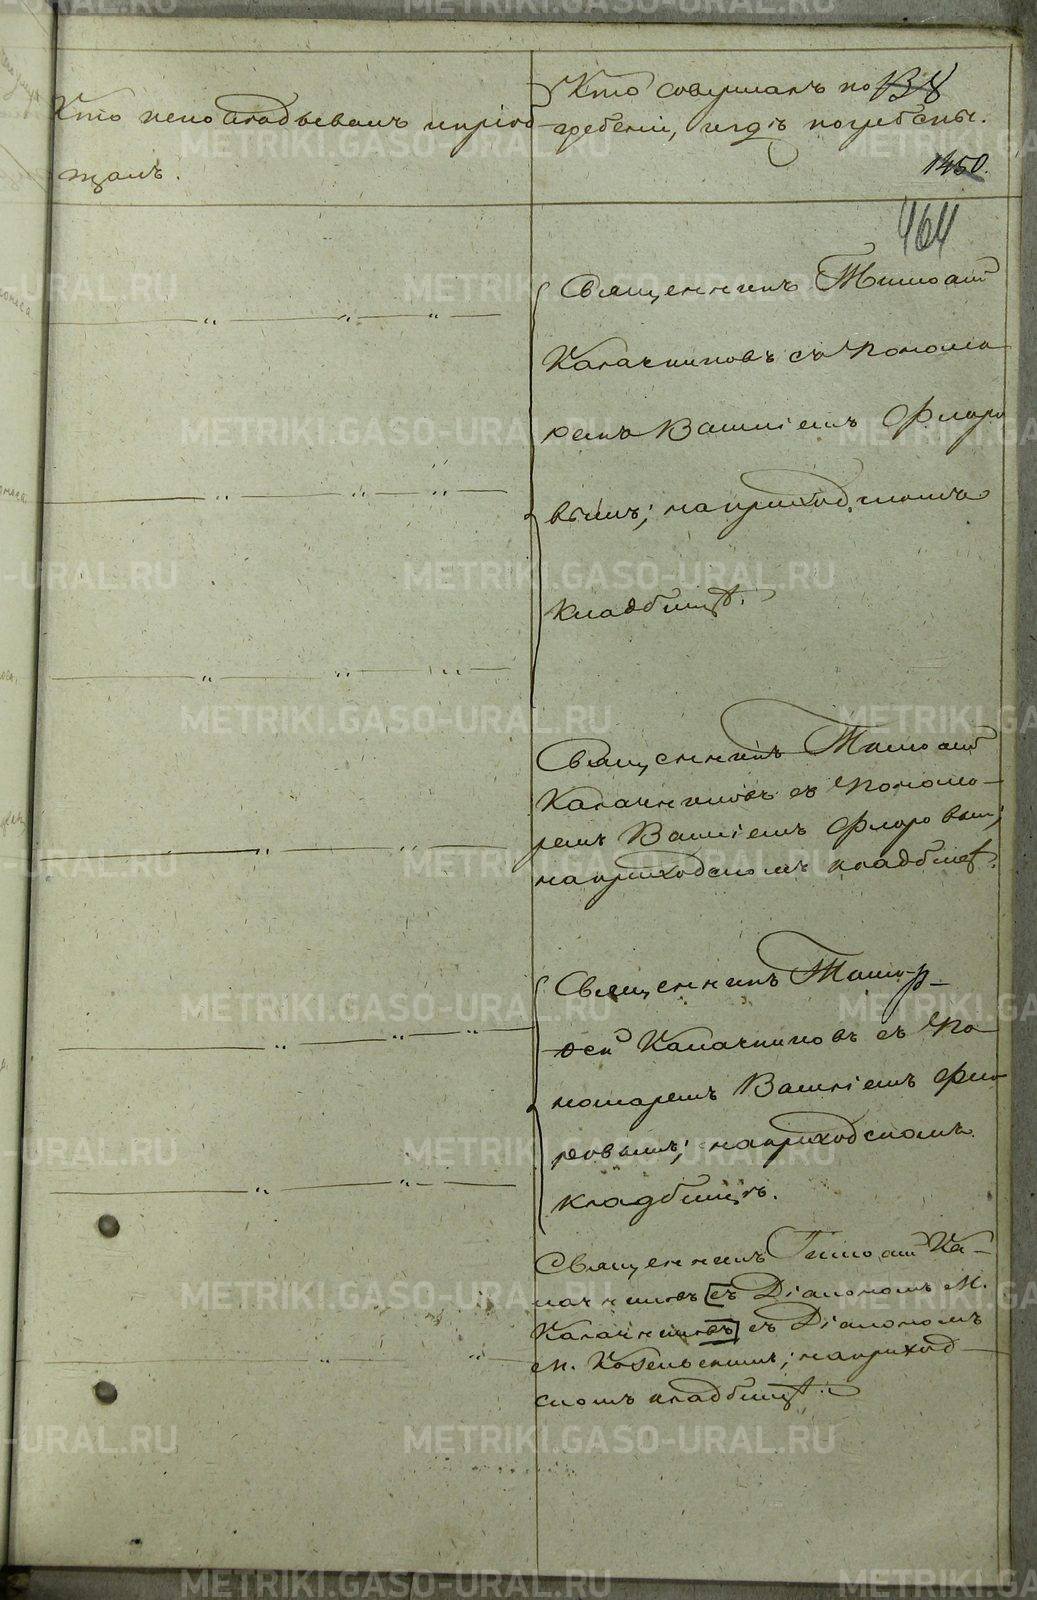 Кто исповѣдывалъ и пріоб
щалъ.
Кто совершалъ по
гребеніе, и гдѣ погребены.
1450.
464
Священникъ Тимоѳей
Калачниковъ съ Понома
ремъ Василіемъ Флоро
вымъ; на приходскомъ
кладбищѣ.
Священникъ Тимоѳей
Калачниковъ съ Понома-
ремъ Василіемъ Флоровым;
на приходскомъ кладбищѣ.
Священникъ Тимо-
ѳей Калачниковъ съ По
номаремъ Василіемъ Фло
ровымъ; на приходскомъ
кладбищѣ.
Священникъ Тимоѳей Ка-
лачниковъ съ Діакономъ М.
Калачниковъ съ Діакономъ
М. Кобельскимъ; на приход-
скомъ кладбищѣ.
METRIKI.GASO-URAL.RU